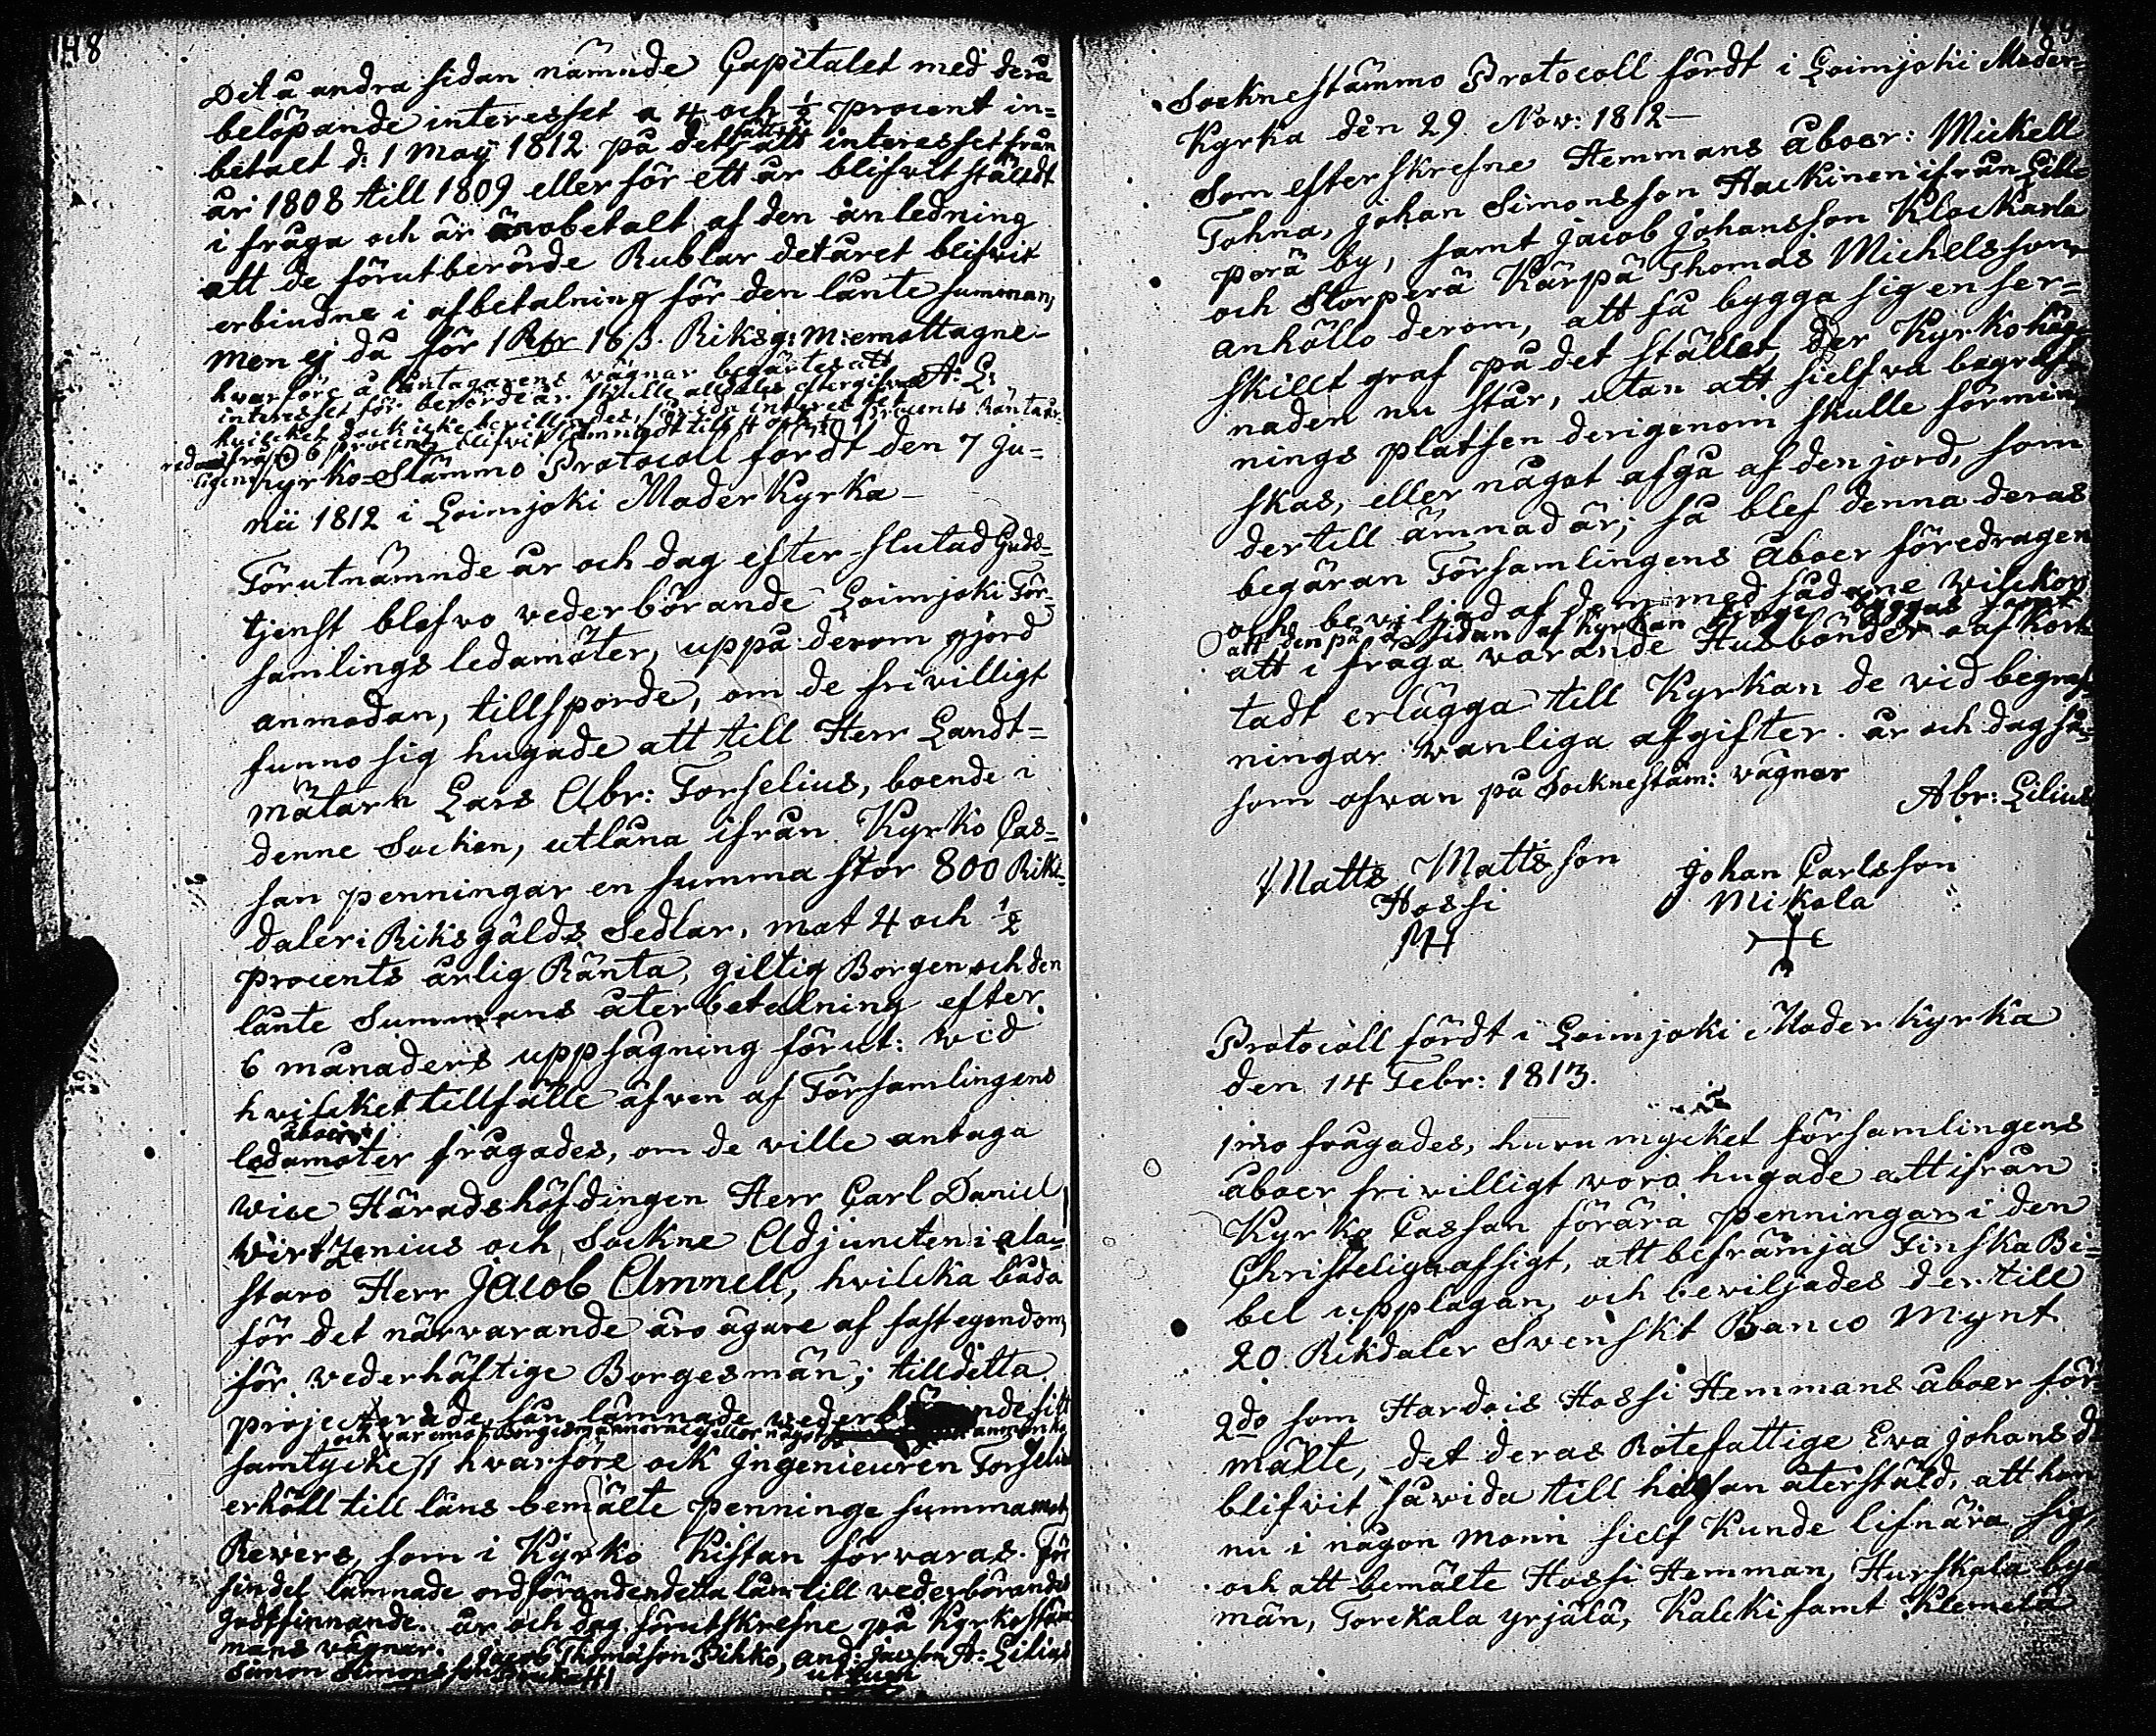 148
Det å andra sidan nämnde Capitalet med derå
belöpande interesset a 4 och ½ procent in-
betalt d: 1 May 1812 på det sätt interesset från
år 1808 till 1809 eller för ett år blifvit stäldt
i fråga och är änobetalt af den anledning
att de förutberörde Rublar det året blifvit
erbudne i afbetalning för den lånte summan,
men ej då för 1 Rbr 16 ß. Riksg: M: emottagne -
hvarföre å låntagarens vägnar begärtes att
interesset för berörde år skulle alldeles eftergifvas A: L:
hvilcket dock icke bevilljades, förrän interesset
ifrån 6 procent blifvit till 4 och ½ procents Ränta
Kyrko-Stämmo Protocoll fördt den 7 Ju-
nii 1812 i Loimjoki Moder Kyrka -
Förutnämnde år och dag efter slutad Guds-
tjenst blefvo vederbörande Loimjoki För-
samlings ledamöter, uppå derom gjord
anmodan, tillsporde, om de frivilligt
funno sig hugade att till Herr Landt-
mätarn Lars Abr: Forselius, boende i
denne Socken, utlåna ifrån Kyrko Cas-
san penningar en summa stor 800 Riks-
daler i Riksgälds Sedlar, mot 4 och ½
procents årlig Ränta, giltig Borgen och den
lånte Summans återbetalning efter
6 månaders uppsägning förut: vid
hvilcket tillfälle äfven af Församlingens
åboer
ledamöter frågades, om de ville antaga
vice Häradshöfdingen Herr Carl Daniel
Wirtzenius och Sockne Adjuncten i Ala-
staro Herr Jacob Amnell, hvilcka båda
för det närvarande äro ägare af fast egendom,
för vederhäftige Borgesmän; till detta
projecterade lån lämnade vederbörande sitt
och var emot Borgesmännerne eller något
samtycke, hvarföre ock Ingenieuren Forselius
erhöll till låns bemälte penninge summa mot
Revers, som i Kyrko Kistan förvaras. För
sin del lämnade ordföranden detta lån till vederbörandes
godtfinnande. år och dag förutskrefne på Kyrkostäm
mans vägnar. Jacob Thomasson Pihko, And: Jacsson A: Lilius
Simon Simonsson
149
Socknestämmo Protocoll fördt i Loimjoki Moder-
Kyrka den 29 Nov: 1812 -
Som efterskrefne Hemmans åboer: Mickell
Tohna, Johan Simonsson Hackinen ifrån Lill-
perä by, samt Jacob Johansson Klockarla
och Storperä Kärpä Thomas Michelsson,
anhöllo derom, att få bygga sig en sär-
skillt graf på det stället, der Kyrkohäg
naden nu står, utan att sielfva begraf-
nings platsen derigenom skulle förmin-
skas, eller något afgå af den jord, som
dertill ämnad är; så blef denna deras
begäran Församlingens åboer föredragen
och beviljad af dem med sådane vilckor,
att den på sidan af Kyrkan byggas samt
att i fråga varande Husbönder oafkort-
tadt erlägga till Kyrkan de vid begraf-
ningar vanliga afgifter. år och dag så-
som ofvan på Socknestäm: vägnar
Abr: Lilius
Matts Mattsson
Hossi
MH
Johan Carlsson
Mikola
Protocoll fördt i Loimjoki Moder Kyrka
den 14 Febr: 1813.
1mo frågades, huru mycket församlingens
åboer frivilligt voro hugade att ifrån
Kyrko Cassan förära penningar i den
Christeliga afsigt, att befrämja Finska Bi-
bel upplagan, och beviljades dertill
20. Rikdaler Svenskt Banco Mynt.
2do som Hardois Hossi Hemmans åboer för-
mälte, det deras Rotefattige Eva Johansd
blifvit såvida till helsan återstäld, att hon
nu i någon monn sielf kunde lifnära sig,
och att bemälte Hossi Hemman, Hurskala bya
män, Torckala yrjälä, Kalcki samt Klemelä